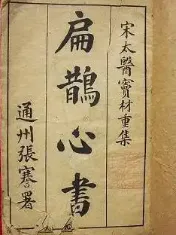 宋太醫竇材重集
扁鵲心書
通州張謇署